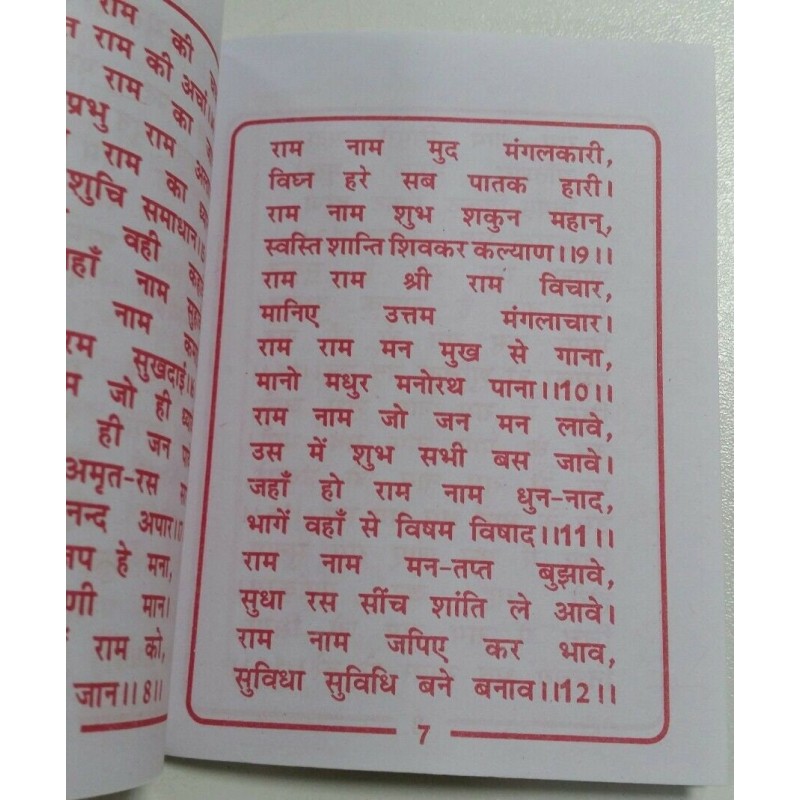 राम की
राम की अर्चा
राम का
प्रभु राम
राम का
शुचि समाधान।
वही
नाम
नाम
सुखदाई
जो ही
ही जन
अमृत-रस
अपार।
हे मना,
मान।
राम को,
जान।।8।।
राम नाम मुद मंगलकारी,
विघ्न हरे सब पातक हारी।
राम नाम शुभ शकुन महान्,
स्वस्ति शान्ति शिवकर कल्याण।।9।।
राम राम श्री राम विचार,
मानिए उत्तम मंगलाचार।
राम राम मन मुख से गाना,
मानो मधुर मनोरथ पाना।।10।।
राम नाम जो जन मन लावे,
उस में शुभ सभी बस जावे।
जहाँ हो राम नाम धुन-नाद,
भागें वहाँ से विषम विषाद।।11।।
राम नाम मन-तप्त बुझावे,
सुधा रस सींच शांति ले आवे।
राम नाम जपिए कर भाव,
सुविधा सुविधि बने बनाव।।12।।
7